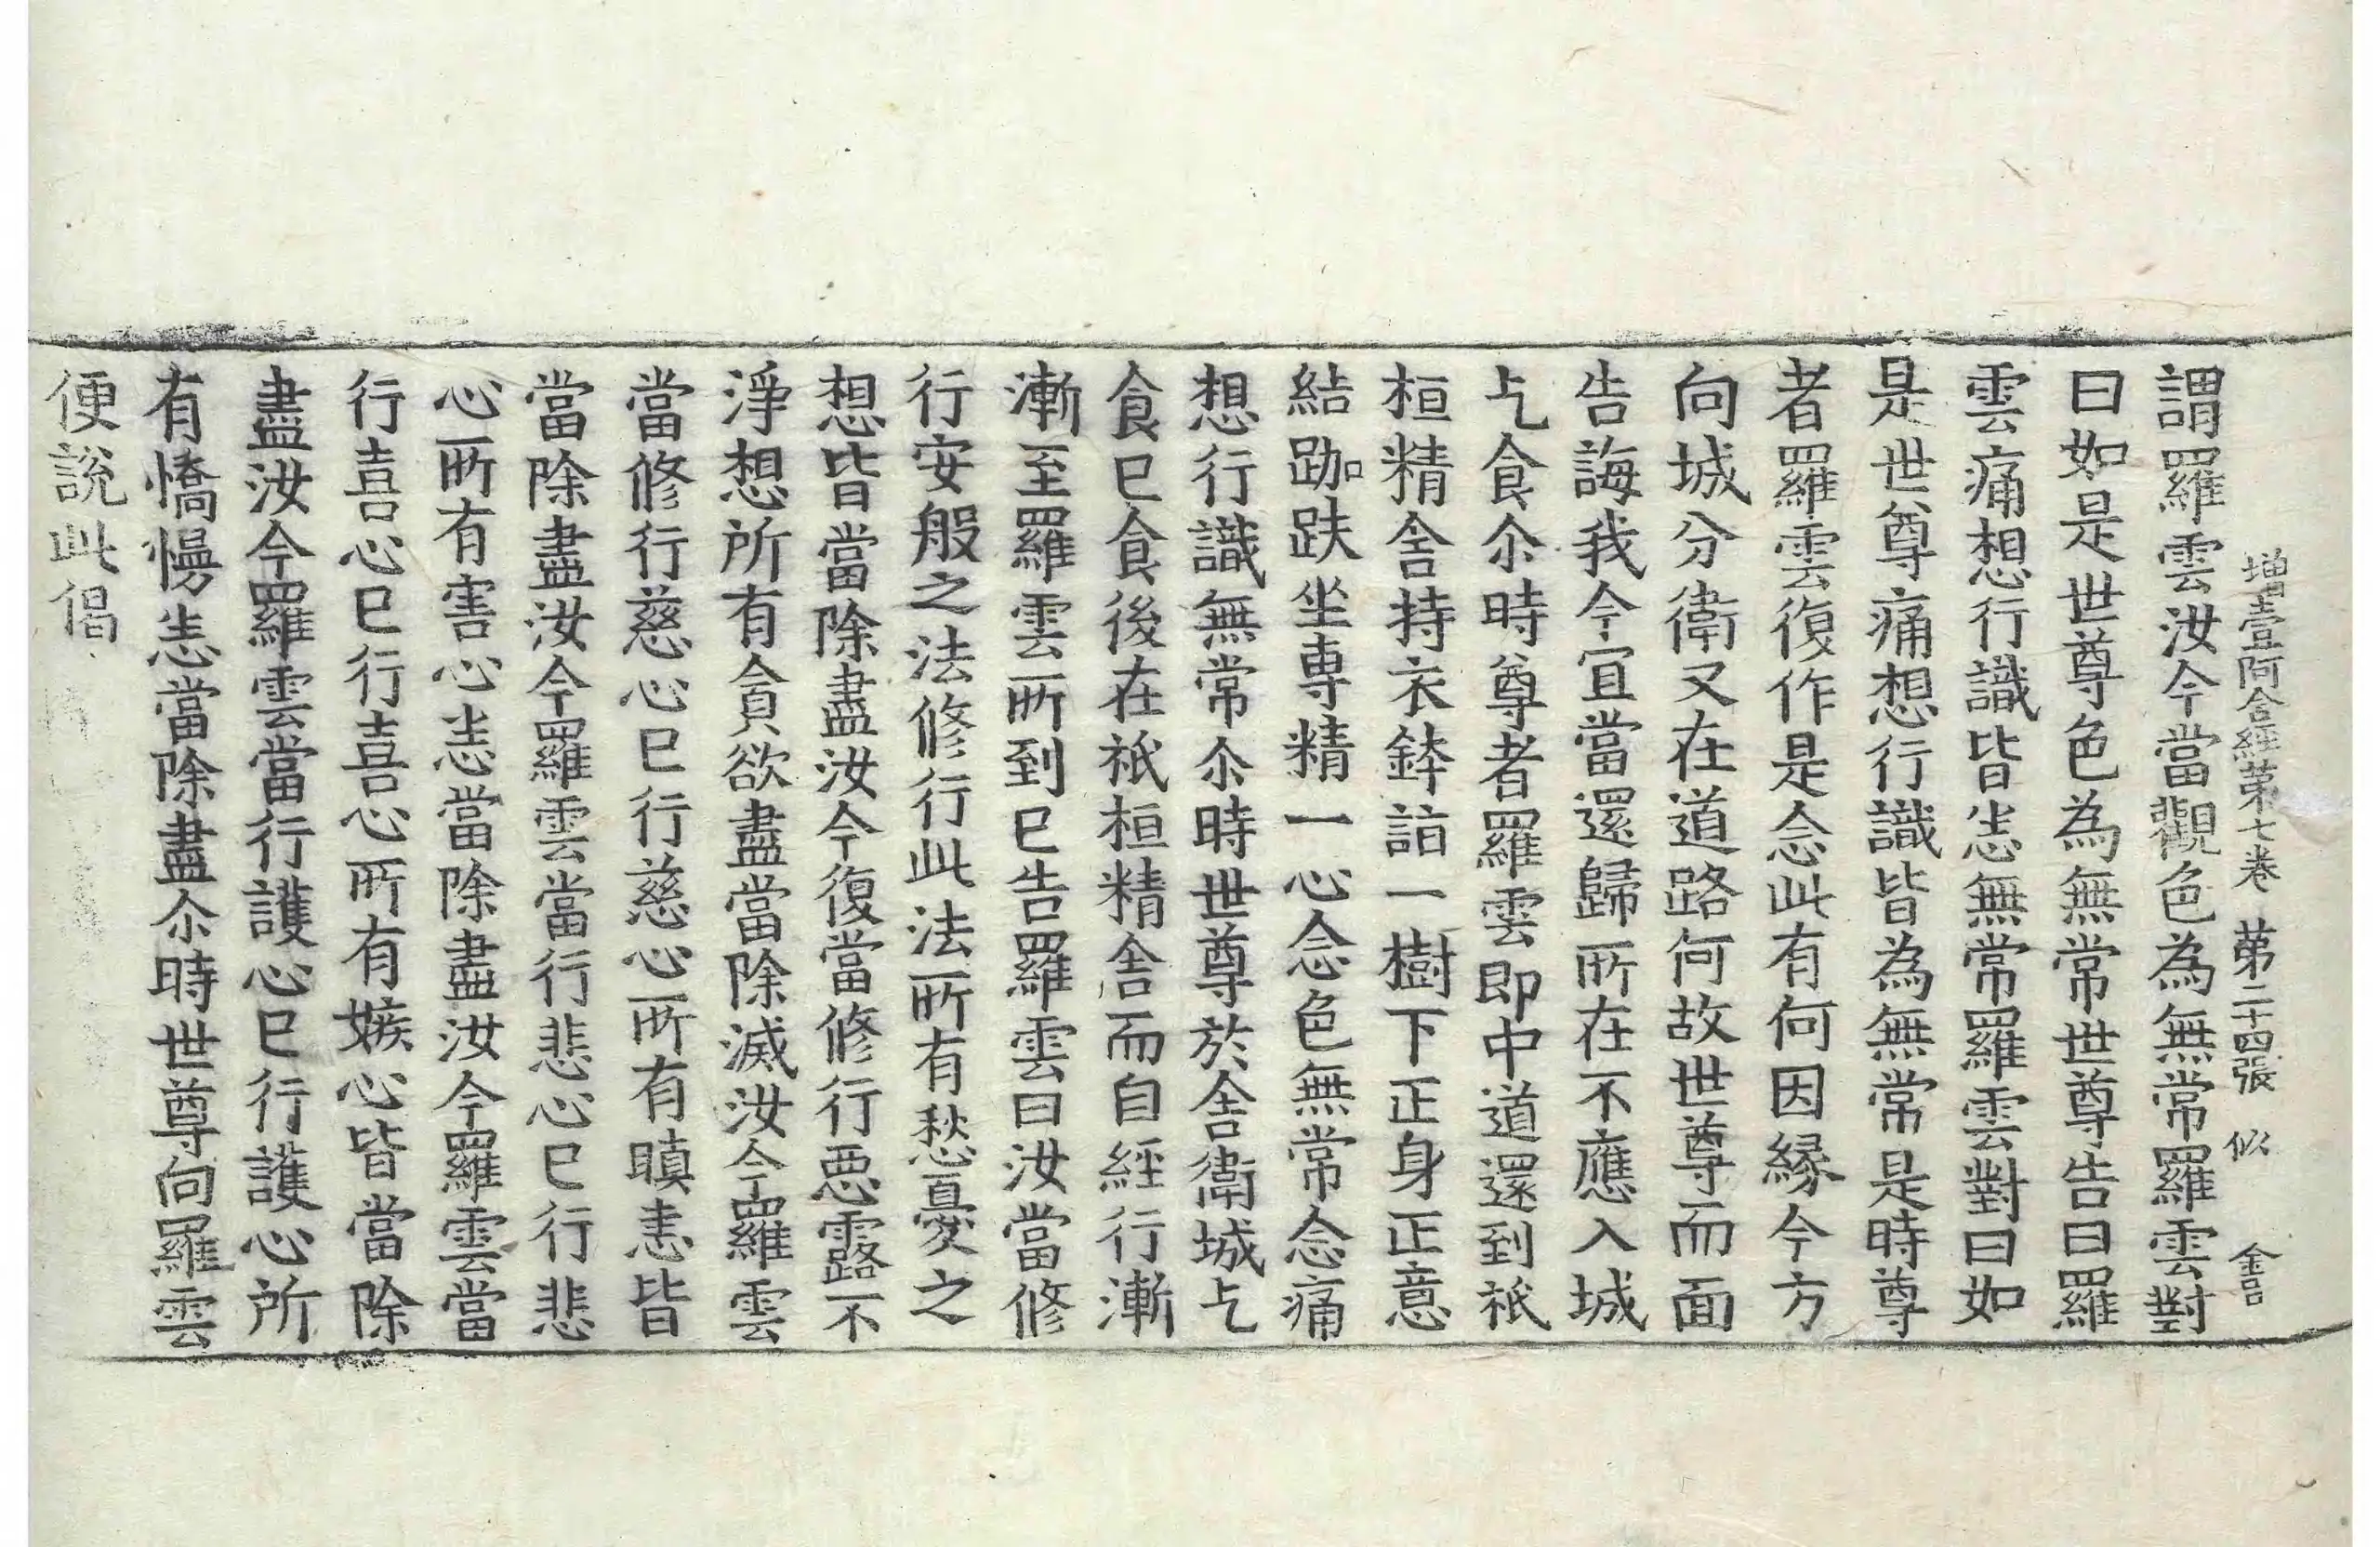 增壹阿含經第七卷　第二十四張　似　金吕
謂羅雲汝今當觀色為無常羅雲對
曰如是世尊色為無常世尊告曰羅
雲痛想行識皆悉無常羅雲對曰如
是世尊痛想行識皆為無常是時尊
者羅雲復作是念此有何因緣今方
向城分衛又在道路何故世尊而面
告誨我今宜當還歸所在不應入城
乞食尒時尊者羅雲即中道還到祇
桓精舍持衣鉢詣一樹下正身正意
結跏趺坐專精一心念色無常念痛
想行識無常尒時世尊於舍衛城乞
食已食後在祇桓精舍而自經行漸
漸至羅雲所到已告羅雲曰汝當修
行安般之法修行此法所有愁憂之
想皆當除盡汝今復當修行惡露不
淨想所有貪欲盡當除滅汝今羅雲
當修行慈心已行慈心所有瞋恚皆
當除盡汝今羅雲當行悲心已行悲
心所有害心悉當除盡汝今羅雲當
行喜心已行喜心所有嫉心皆當除
盡汝今羅雲當行護心已行護心所
有憍慢悉當除盡尒時世尊向羅雲
便說此偈